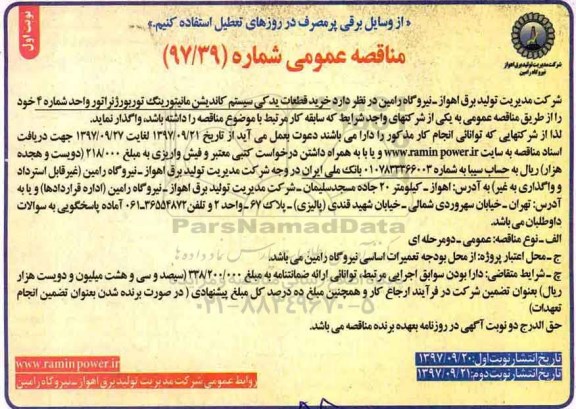 « از وسایل برقی پرمصرف در روزهای تعطیل استفاده کنیم.»
نوبت اول
مناقصه عمومی شماره (۹۷/۳۹)
شرکت مدیریت تولید برق اهواز
نیروگاه رامین
شرکت مدیریت تولید برق اهواز ـ نیروگاه رامین در نظر دارد خرید قطعات یدکی سیستم کاندیشن مانیتورینگ توربوژنراتور واحد شماره ۴ خود
را از طریق مناقصه عمومی به یکی از شرکتهای واجد شرایط که سابقه کار مرتبط با موضوع مناقصه را داشته باشد، واگذار نماید.
لذا از شرکتهایی که توانائی انجام کار مذکور را دارا می باشند دعوت بعمل می آید از تاریخ ۱۳۹۷/۰۹/۲۱ لغایت ۱۳۹۷/۰۹/۲۷ جهت دریافت
اسناد مناقصه به سایت www.raminpower.ir و یا با به همراه داشتن درخواست کتبی معتبر و فیش واریزی به مبلغ ۲۱۸/۰۰۰ (دویست و هجده
هزار) ریال به حساب سیبا به شماره ۰۱۰۷۸۳۳۲۶۶۰۰۳ بانک ملی ایران در وجه شرکت مدیریت تولید برق اهواز ـ نیروگاه رامین (غیر قابل استرداد
و واگذاری به غیر) به آدرس: اهواز ـ کیلومتر ۲۰ جاده مسجدسلیمان ـ شرکت مدیریت تولید برق اهواز ـ نیروگاه رامین (اداره قراردادها) و یا به
آدرس: تهران ـ خیابان سهروردی شمالی ـ خیابان شهید قندی (پالیزی) ـ پلاک ۶۷ ـ واحد ۲ و تلفن ۳۶۵۵۴۸۷۲ـ۰۶۱ آماده پاسخگویی به سوالات
داوطلبان می باشد.
ParsNamadData
الف ـ نوع مناقصه: عمومی ـ دو مرحله ای
ب ـ محل اعتبار پروژه: از محل بودجه تعمیرات اساسی نیروگاه رامین می باشد.
ج ـ شرایط متقاضی: دارا بودن سوابق اجرایی مرتبط، توانائی ارائه ضمانتنامه به مبلغ ۳۳۸/۲۰۰/۰۰۰ (سیصد و سی و هشت میلیون و دویست هزار
ریال) بعنوان تضمین شرکت در فرآیند ارجاع کار و همچنین مبلغ ده درصد کل مبلغ پیشنهادی ( در صورت برنده شدن بعنوان تضمین انجام
تعهدات)
۰۲۱-۸۸۳۴۹۶۷۰-۵
حق الدرج دو نوبت آگهی در روزنامه بعهده برنده مناقصه می باشد.
تاریخ انتشار نوبت اول: ۱۳۹۷/۰۹/۲۰
تاریخ انتشار نوبت دوم: ۱۳۹۷/۰۹/۲۱
www.raminpower.ir
روابط عمومی شرکت مدیریت تولید برق اهواز ـ نیروگاه رامین